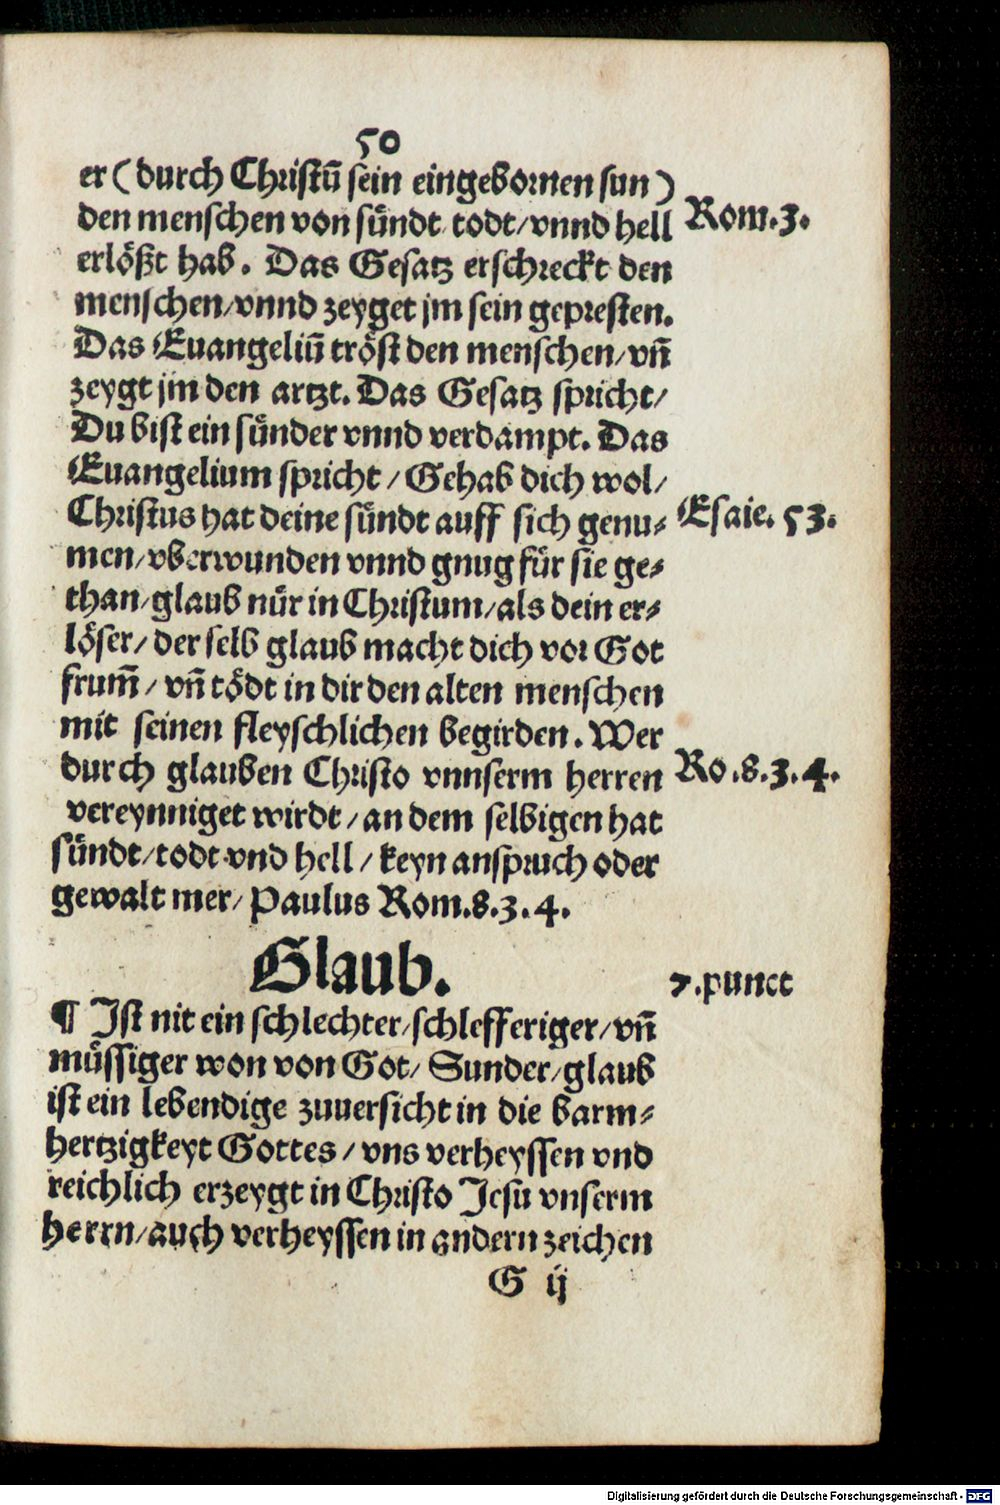 50
er (durch Christū sein eingebornen sun)
den menschen von sündt todt/vnnd hell
Rom.3.
erlößt hab. Das Gesatz erschreckt den
menschen/vnnd zeyget jm sein gepresten.
Das Euangeliū tröst den menschen/vn̄
zeygt jm den artzt. Das Gesatz spricht/
Du bist ein sünder vnnd verdampt. Das
Euangelium spricht/Gehab dich wol/
Christus hat deine sündt auff sich genu⸗
Esaie. 53.
men/vberwunden vnnd gnug für sie ge⸗
than/glaub nür in Christum/als dein er⸗
löser/der selb glaub macht dich vor Got
frum̄/vn̄ tödt in dir den alten menschen
mit seinen fleyschlichen begirden. Wer
durch glauben Christo vnnserm herren
Ro.8.3.4.
vereynniget wirdt/an dem selbigen hat
sündt/todt vnd hell/keyn anspruch oder
gewalt mer/Paulus Rom.8.3.4.
Glaub.
7.punct
¶ Ist nit ein schlechter/schlefferiger/vn̄
müssiger won von Got/Sunder/glaub
ist ein lebendige zuuersicht in die barm⸗
hertzigkeyt Gottes/vns verheyssen vnd
reichlich erzeygt in Christo Jesu vnserm
herrn/auch verheyssen in andern zeichen
G ij
Digitalisierung gefördert durch die Deutsche Forschungsgemeinschaft - DFG